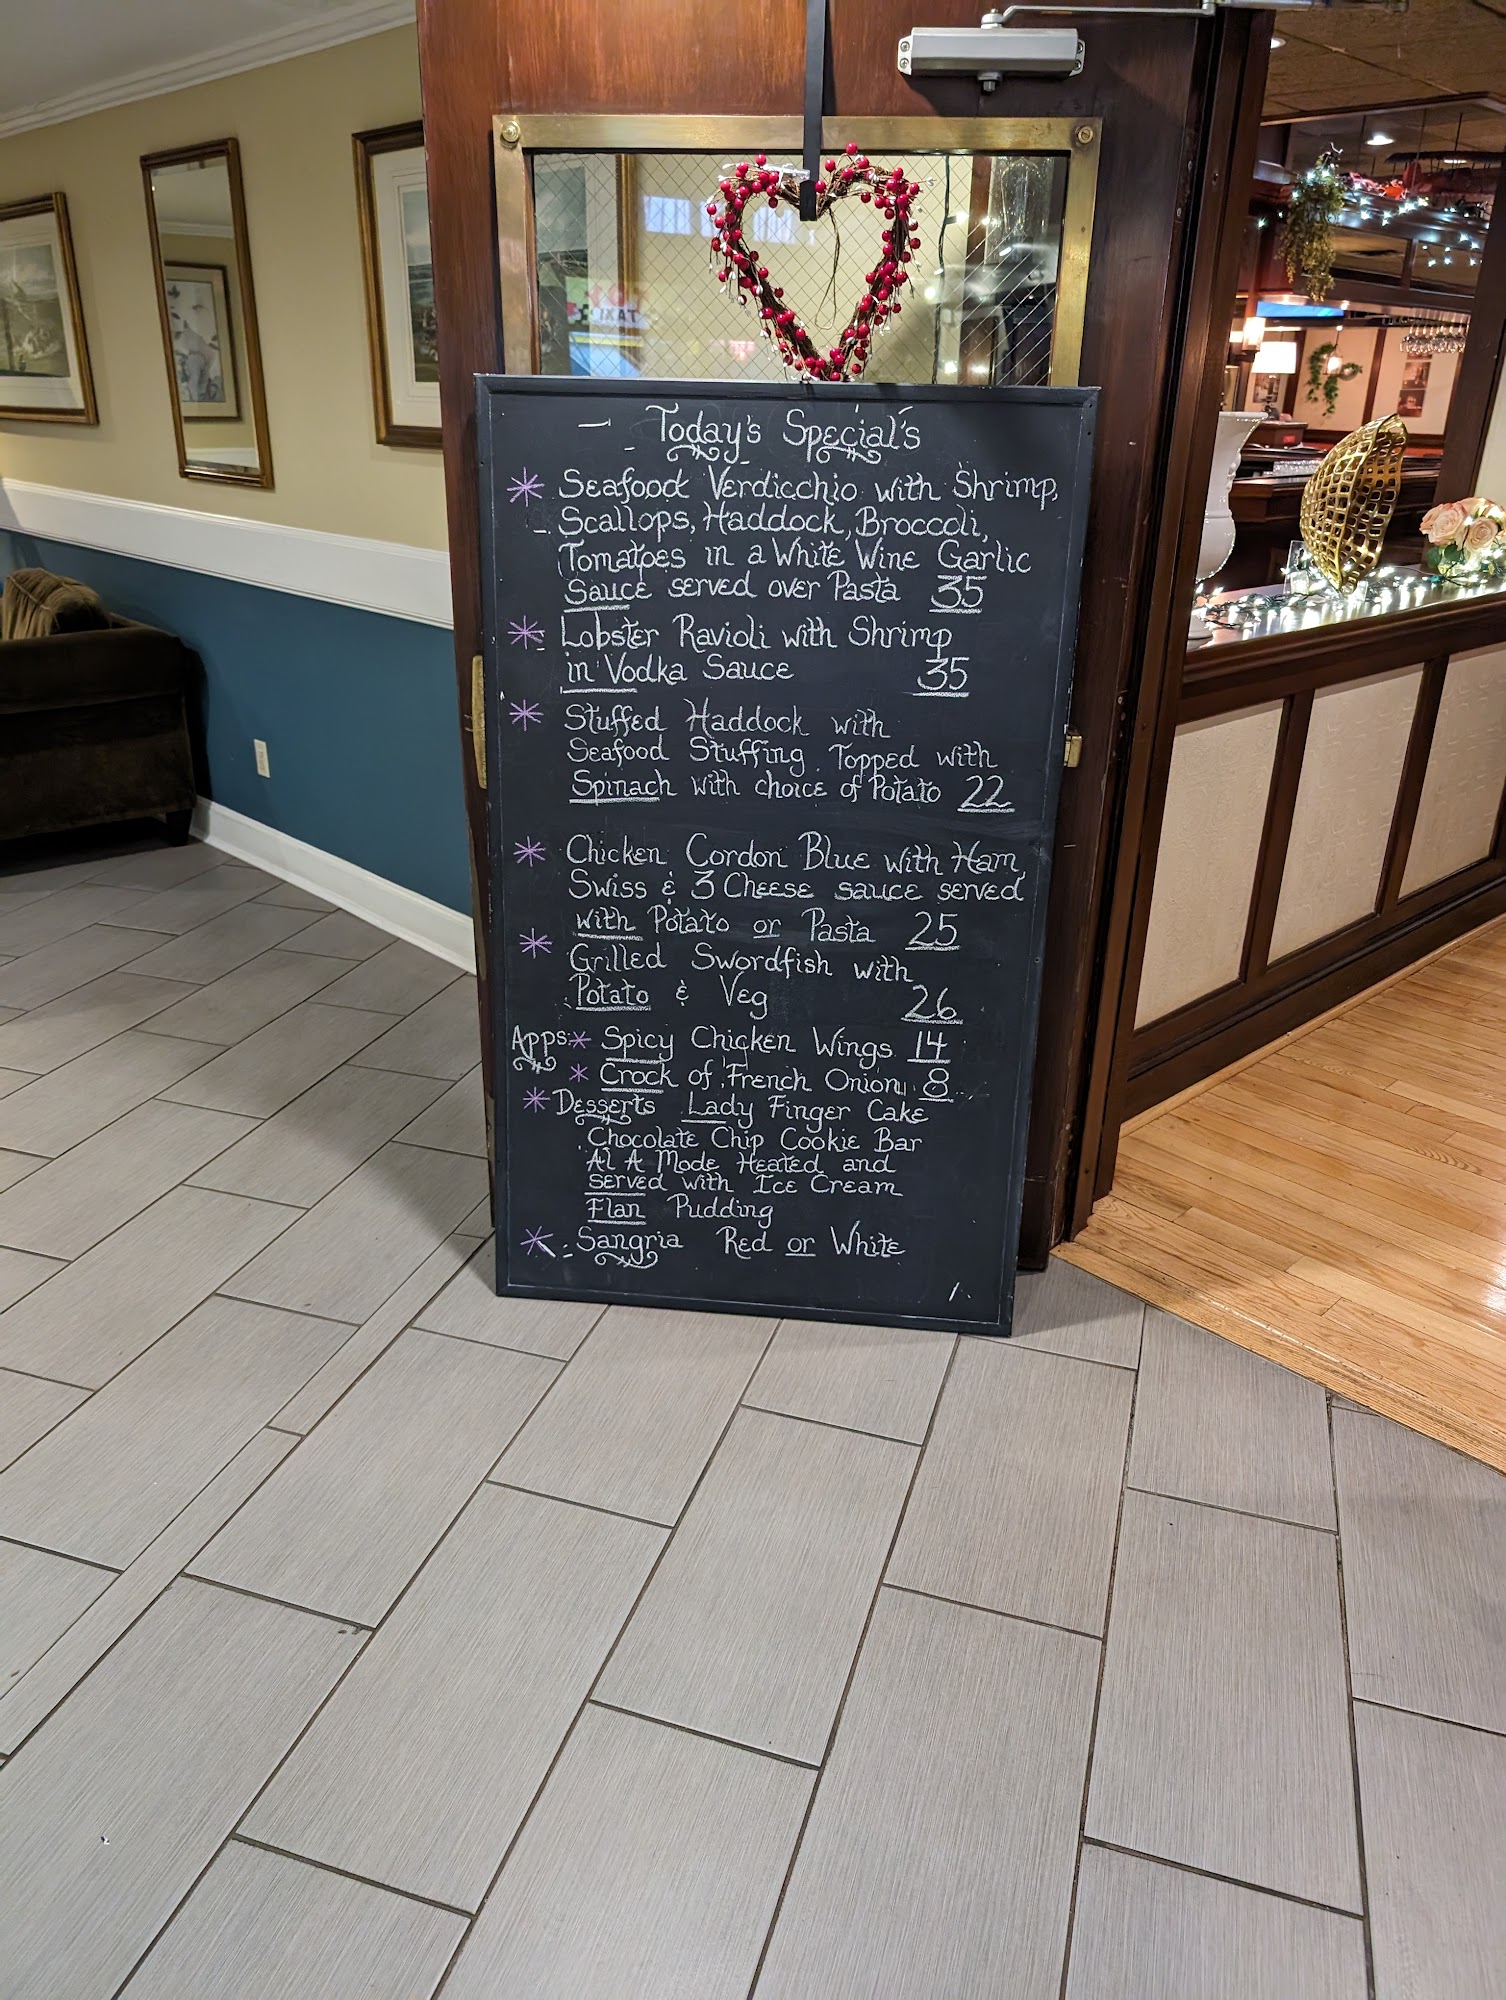 Today's Special's
Seafood Verdicchio with Shrimp,
Scallops, Haddock, Broccoli,
Tomatoes in a White Wine Garlic
Sauce served over Pasta 35
Lobster Ravioli with Shrimp
in Vodka Sauce 35
Stuffed Haddock with
Seafood Stuffing Topped with
Spinach with choice of Potato 22
Chicken Cordon Blue with Ham,
Swiss & 3 Cheese sauce served
with Potato or Pasta 25
Grilled Swordfish with
Potato & Veg 26
Apps: Spicy Chicken Wings 14
Crock of French Onion 8
Desserts Lady Finger Cake
Chocolate Chip Cookie Bar
Al A Mode Heated and
served with Ice Cream
Flan Pudding
Sangria Red or White
TAXI